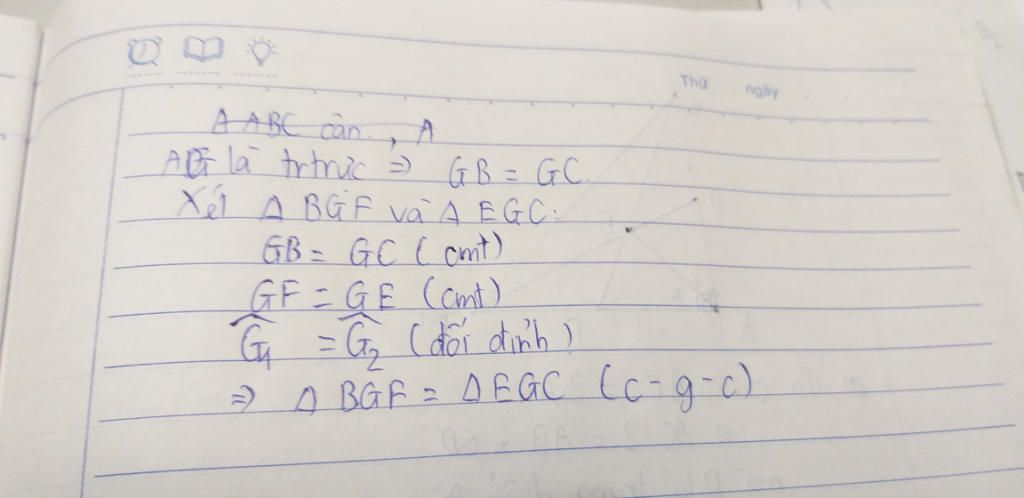 Thứ ngày
Δ ABC cân, A
AG là trtrực => GB = GC
Xét Δ BGF và Δ EGC:
GB = GC (cmt)
GF = GE (cmt)
Ĝ1 = Ĝ2 (đối đỉnh)
=> Δ BGF = Δ EGC (c-g-c)